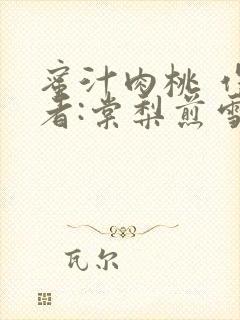 蜜汁肉桃 作
者:棠梨煎雪
瓦尔